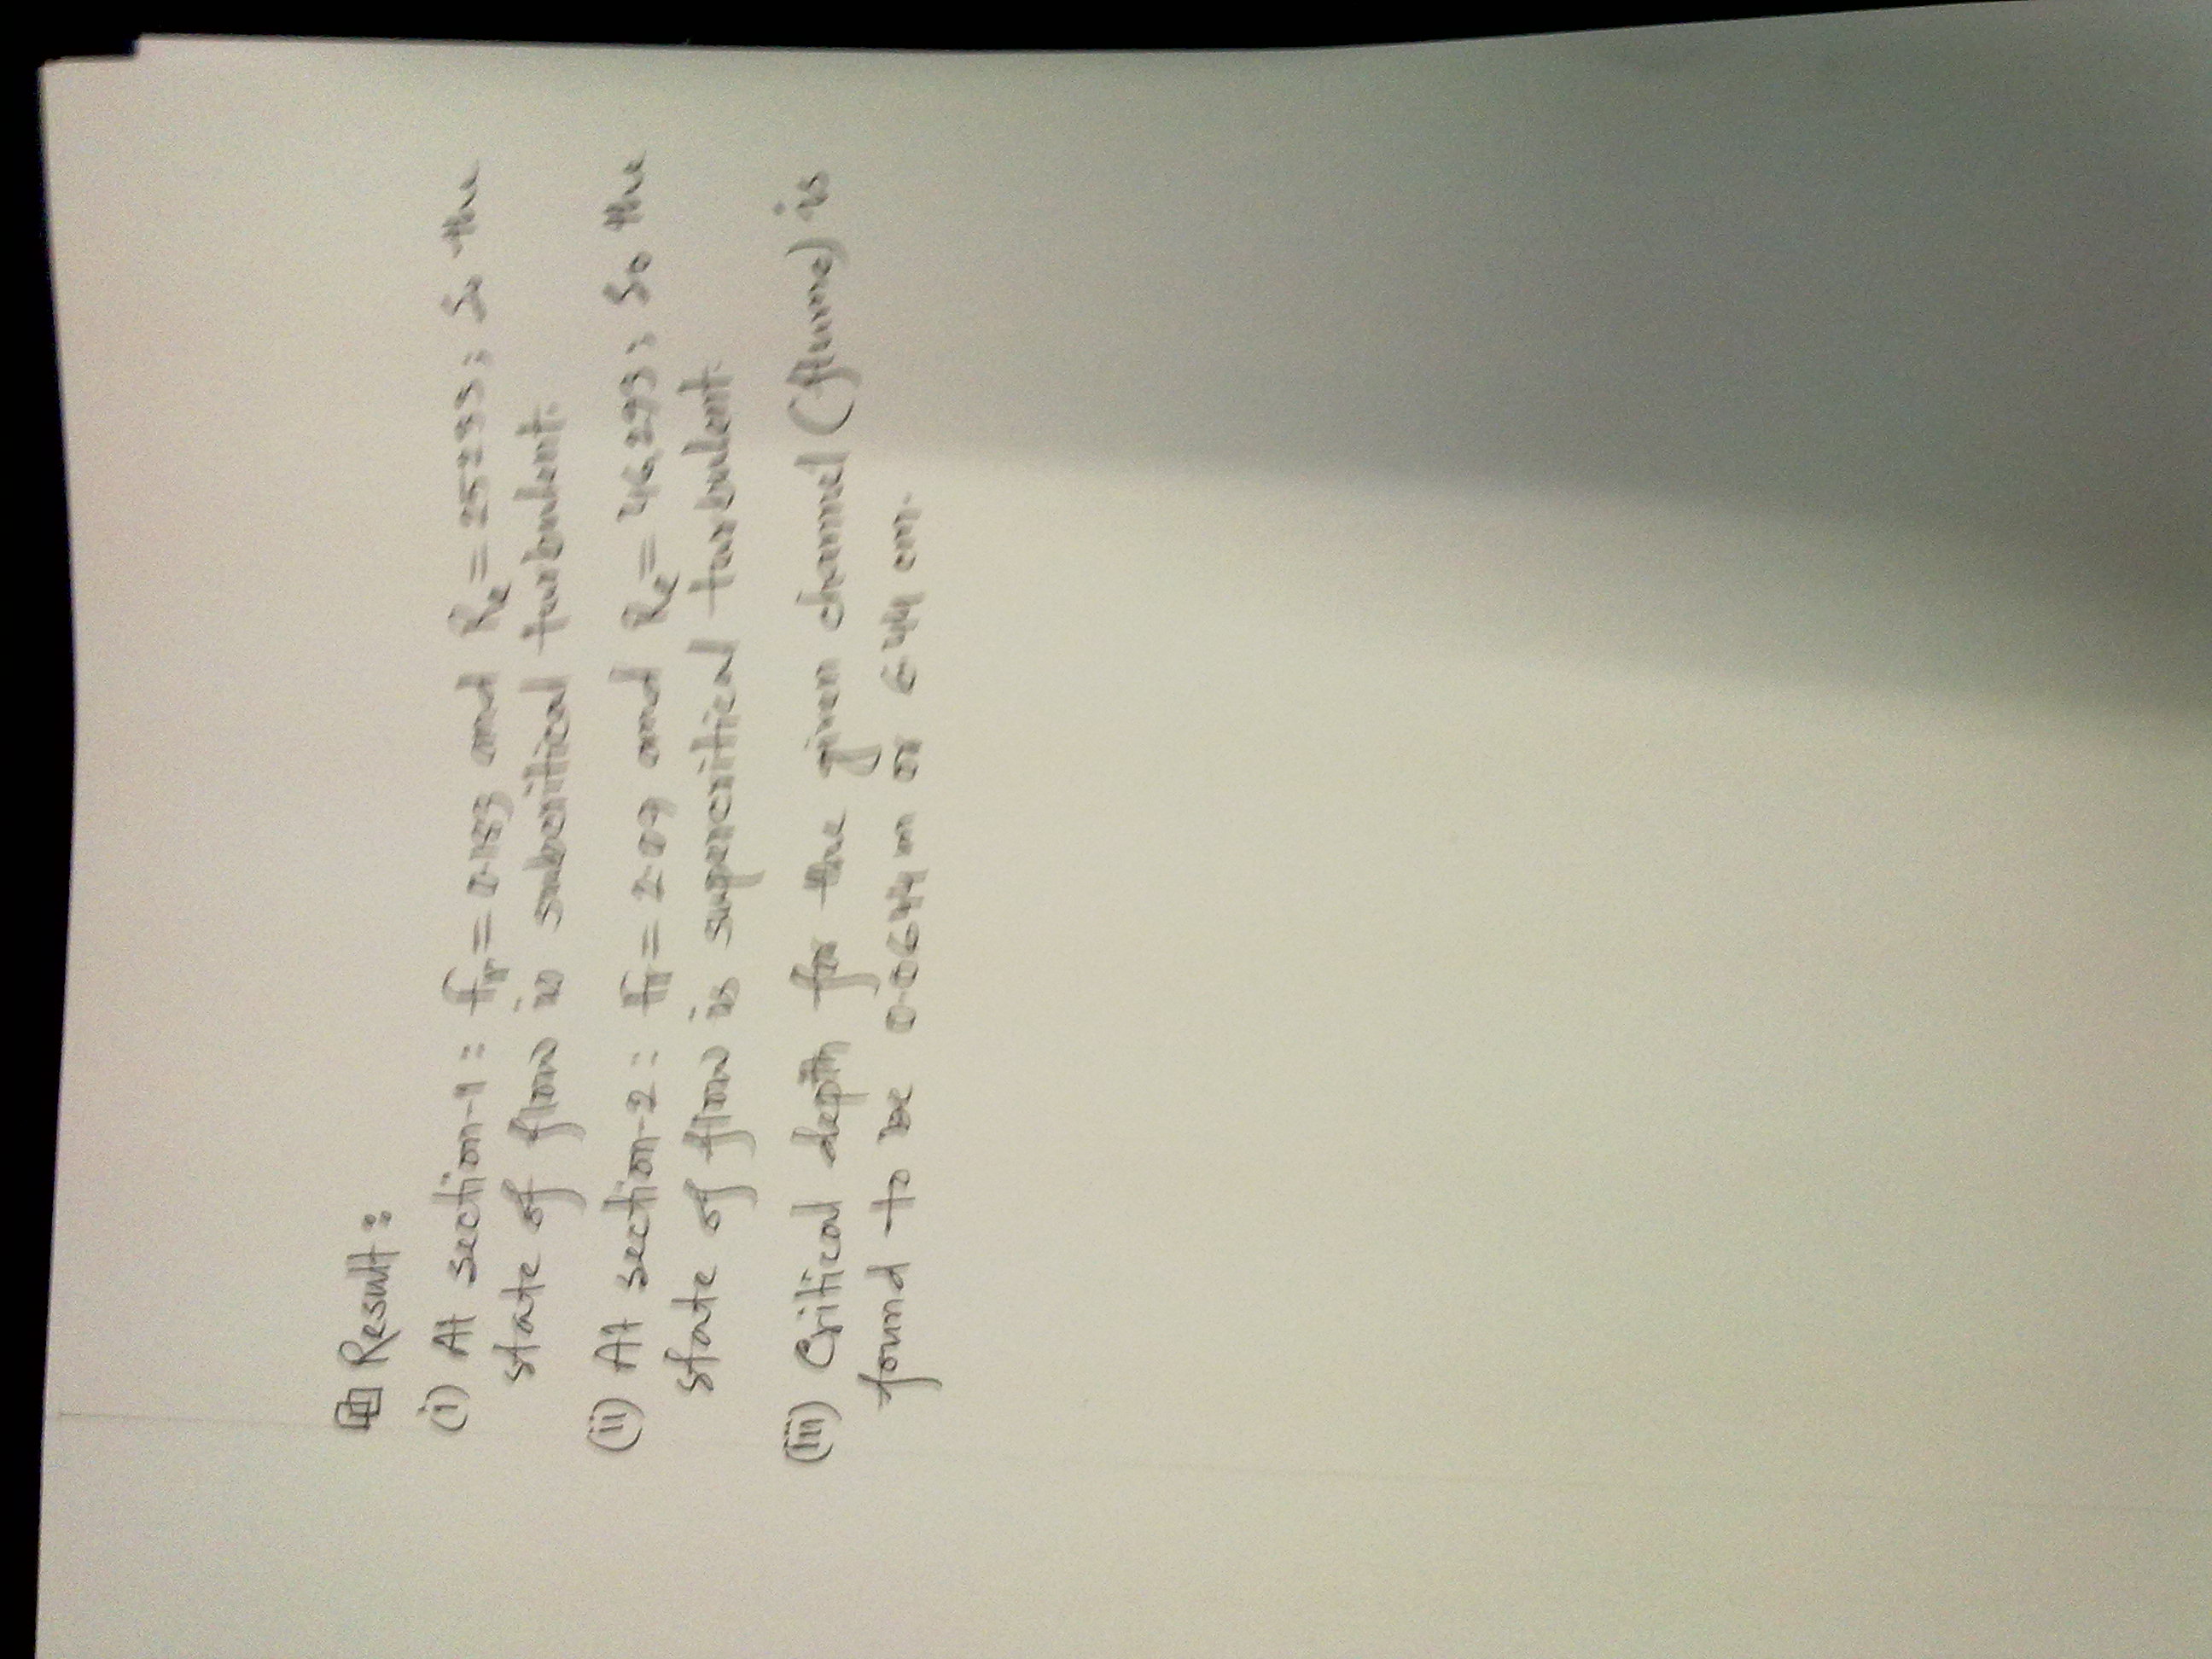 Result:
(i) At section-1: Fr = 0.153 and Re = 25235; So the
state of flow is subcritical turbulent.
(ii) At section-2: Fr = 2.09 and Re = 46,293; So the
state of flow is supercritical turbulent.
(iii) Critical depth for the given channel (flume) is
found to be 0.0644 m or 6.44 cm.